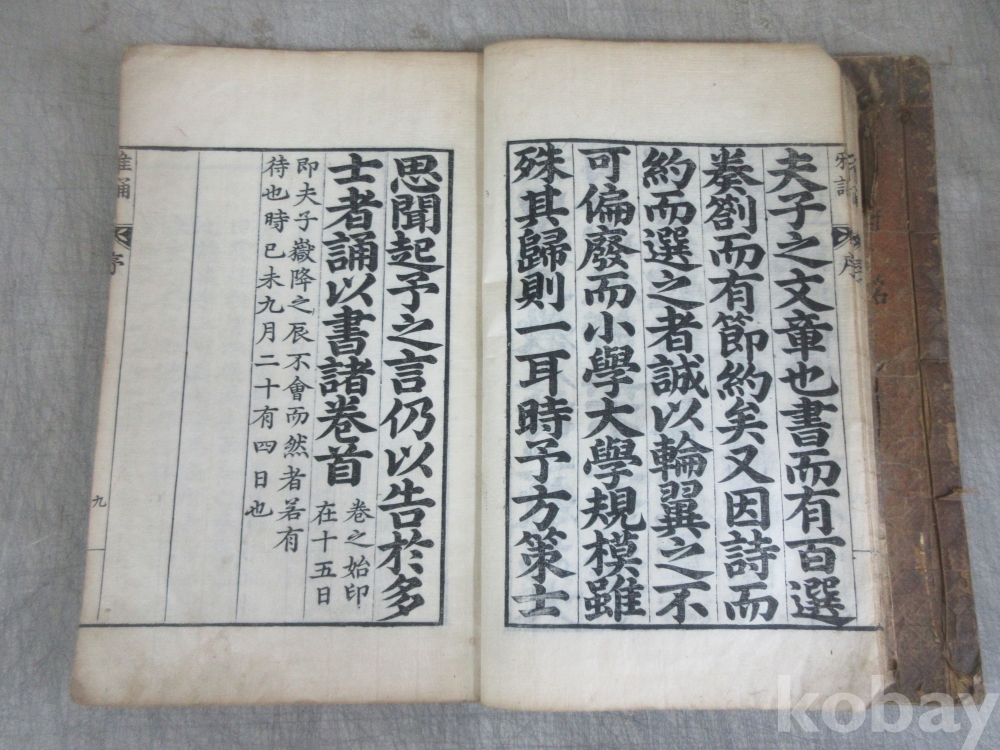 夫子之文章也書而有百選
奏劄而有節約矣又因詩而
約而選之者誠以輪翼之不
可偏廢而小學大學規模雖
殊其歸則一耳時予方策士
思聞起予之言仍以告於多
士者誦以書諸卷首
卷之始印
在十五日
即夫子嶽降之辰不會而然者若有
待也時已未九月二十有四日也
雅誦
序
九
雅誦
序
kobay